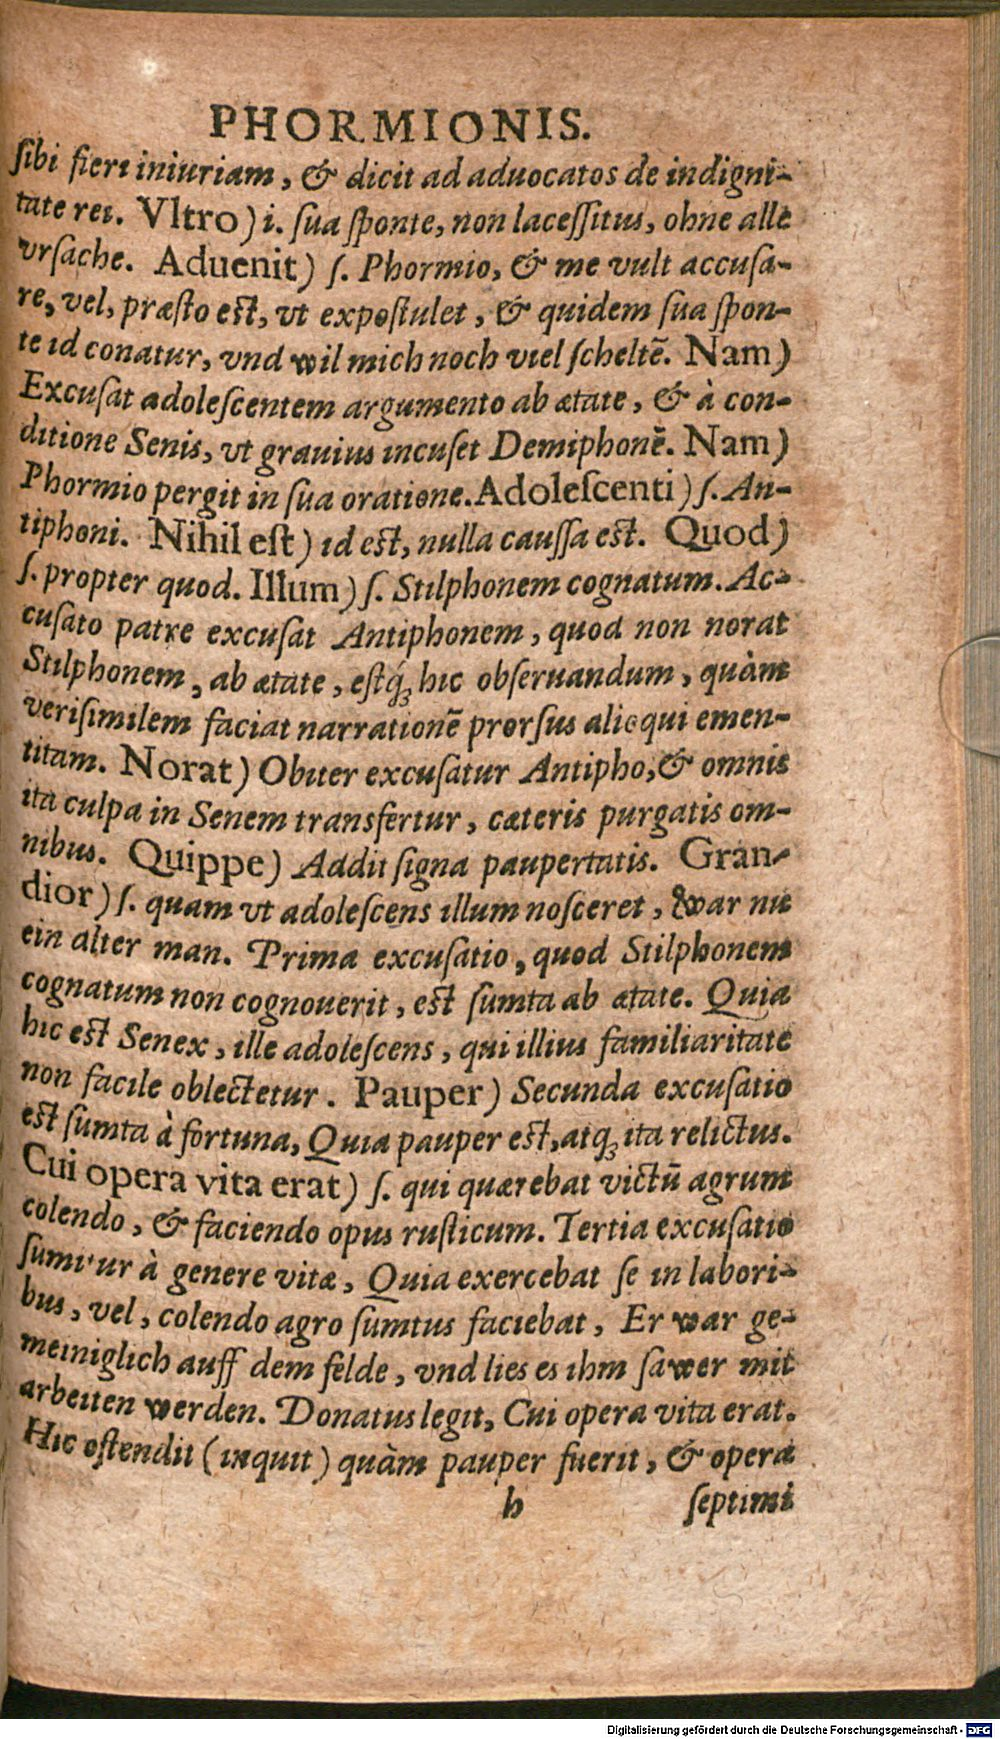 PHORMIONIS.
ſibi fieri iniuriam, & dicit ad aduocatos de indigni-
tate rei. Vltro) i. ſua ſponte, non laceſſitus, ohne alle
vrſache. Aduenit) ſ. Phormio, & me vult accuſa-
re, vel, præſto eſt, vt expoſtulet, & quidem ſua ſpon-
te id conatur, vnd wil mich noch viel ſcheltē. Nam)
Excuſat adoleſcentem argumento ab ætate, & à con-
ditione Senis, vt grauius incuſet Demiphonē. Nam)
Phormio pergit in ſua oratione. Adoleſcenti) ſ. An-
tiphoni. Nihil eſt) id eſt, nulla cauſſa eſt. Quod)
ſ. propter quod. Illum) ſ. Stilphonem cognatum. Ac-
cuſato patre excuſat Antiphonem, quod non norat
Stilphonem, ab ætate, eſtq́ꝫ hic obſeruandum, quàm
veriſimilem faciat narrationē prorſus alioqui emen-
titam. Norat) Obiter excuſatur Antipho, & omnis
ita culpa in Senem transfertur, cæteris purgatis om-
nibus. Quippe) Addit ſigna paupertatis. Gran-
dior) ſ. quam vt adoleſcens illum noſceret, & war nu
ein alter man. Prima excuſatio, quod Stilphonem
cognatum non cognouerit, eſt ſumta ab ætate. Quia
hic eſt Senex, ille adoleſcens, qui illius familiaritate
non facile oblectetur. Pauper) Secunda excuſatio
eſt ſumta à fortuna, Quia pauper eſt, atqꝫ ita relictus.
Cui opera vita erat) ſ. qui quærebat victū agrum
colendo, & faciendo opus ruſticum. Tertia excuſatio
ſumitur à genere vitæ, Quia exercebat ſe in labori-
bus, vel, colendo agro ſumtus faciebat, Er war ge-
meiniglich auff dem felde, vnd lies es ihm ſawer mit
arbeiten werden. Donatus legit, Cui opera vita erat.
Hic oſtendit (inquit) quàm pauper fuerit, & opera
h ſeptimi
Digitalisierung gefördert durch die Deutsche Forschungsgemeinschaft - DFG